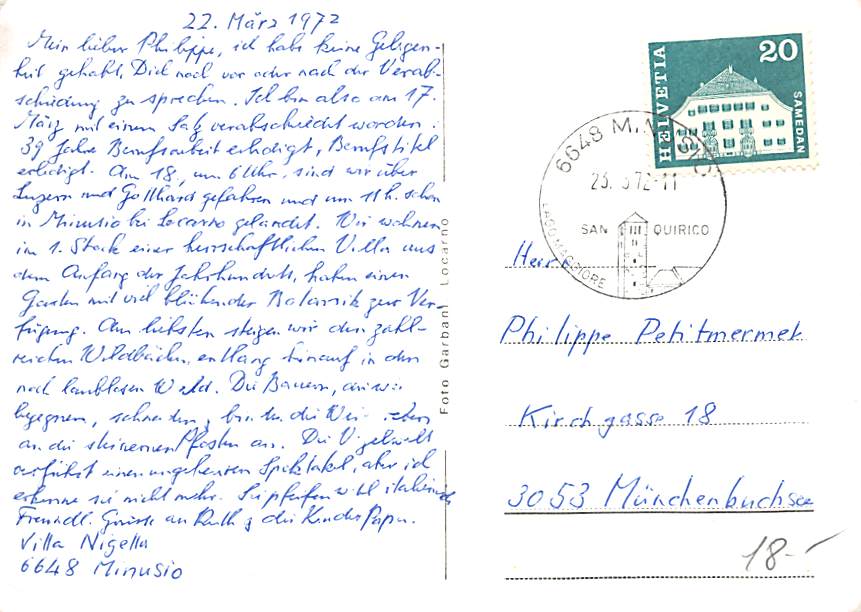 22. März 1972
Mein lieber Philippe, ich habe keine Gelegen-
heit gehabt, Dich noch vor oder nach der Verab-
schiedung zu sprechen. Ich bin also am 17.
März mit einem Satz verabschiedet worden:
39 Jahre Berufsarbeit erledigt, Berufstitel
erledigt. Am 18., um 6 Uhr, sind wir über
Luzern und Gotthard gefahren und um 11 h. schon
in Minusio bei Locarno gelandet. Wir wohnen
im 1. Stock einer herrschaftlichen Villa aus
dem Anfang des Jahrhunderts, haben einen
Garten mit viel blühender Botanik zur Ver-
fügung. Am liebsten steigen wir den zahl-
reichen Wildbächen entlang hinauf in den
noch laublosen Wald. Die Bauern, denen wir
begegnen, schneiden, binden die Weinreben
an die steinernen Pfosten an. Die Vogelwelt
vollführt einen ungeheuren Spektakel, aber ich
erkenne sie nicht mehr. Sie pfeifen wohl italienisch
Freundl. Grüsse an Ruth & die Kinder Papa.
Villa Nigella
6648 Minusio
Foto Garbani Locarno
HELVETIA
20
SAMEDAN
6648 MINUSIO
23. 3. 72-11
SAN QUIRICO
LAGO MAGGIORE
Herr
Philippe Petitmermet
Kirchgasse 18
3053 Münchenbuchsee
18.-